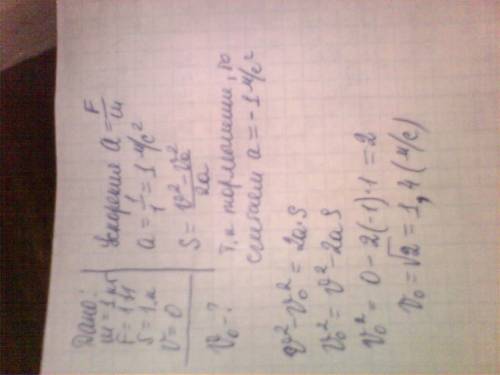 Дано:
m = 1 кг
F = 1 Н
S = 1 м
v = 0
v₀ - ?
Ускорение a = F/m
a = 1/1 = 1 м/с²
S = (v² - v₀²)/2a
Т.к торможение, то
считаем a = -1 м/с²
v² - v₀² = 2a·S
v₀² = v² - 2aS
v₀² = 0 - 2(-1)·1 = 2
v₀ = √2 = 1,4 (м/с)